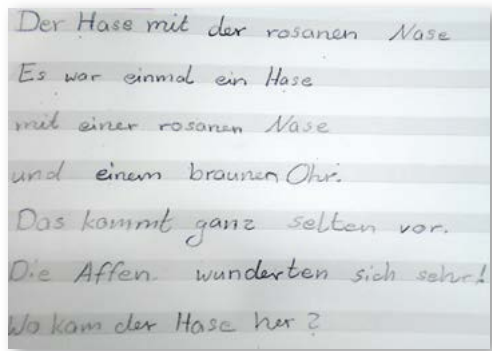 Der Hase mit der rosanen Nase
Es war einmal ein Hase
mit einer rosanen Nase
und einem braunen Ohr.
Das kommt ganz selten vor.
Die Affen wunderten sich sehr!
Wo kam der Hase her?